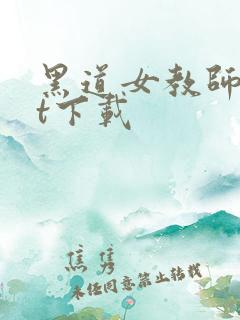 黑道女教師
t下載
焦隽
未经同意禁止转载